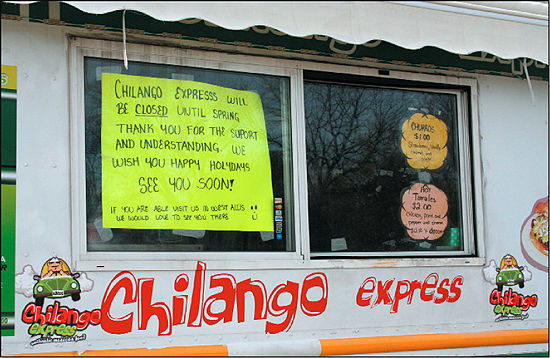 CHILANGO EXPRESSS WILL
BE CLOSED UNTIL SPRING
THANK YOU FOR THE SUPORT
AND UNDERSTANDING. WE
WISH YOU HAPPY HOLYDAYS
SEE YOU SOON!
IF YOU ARE ABLE VISIT US IN WEST ALLIS
WE WOULD LOVE TO SEE YOU THERE
CHURROS
$1.00
Strawberry, Vanilla
HOT
Tamales
$2.00
CHICKEN, PORK and
pepper and cheese
Chilango express
Chilango
express
authentic mexican food
Chilango
express